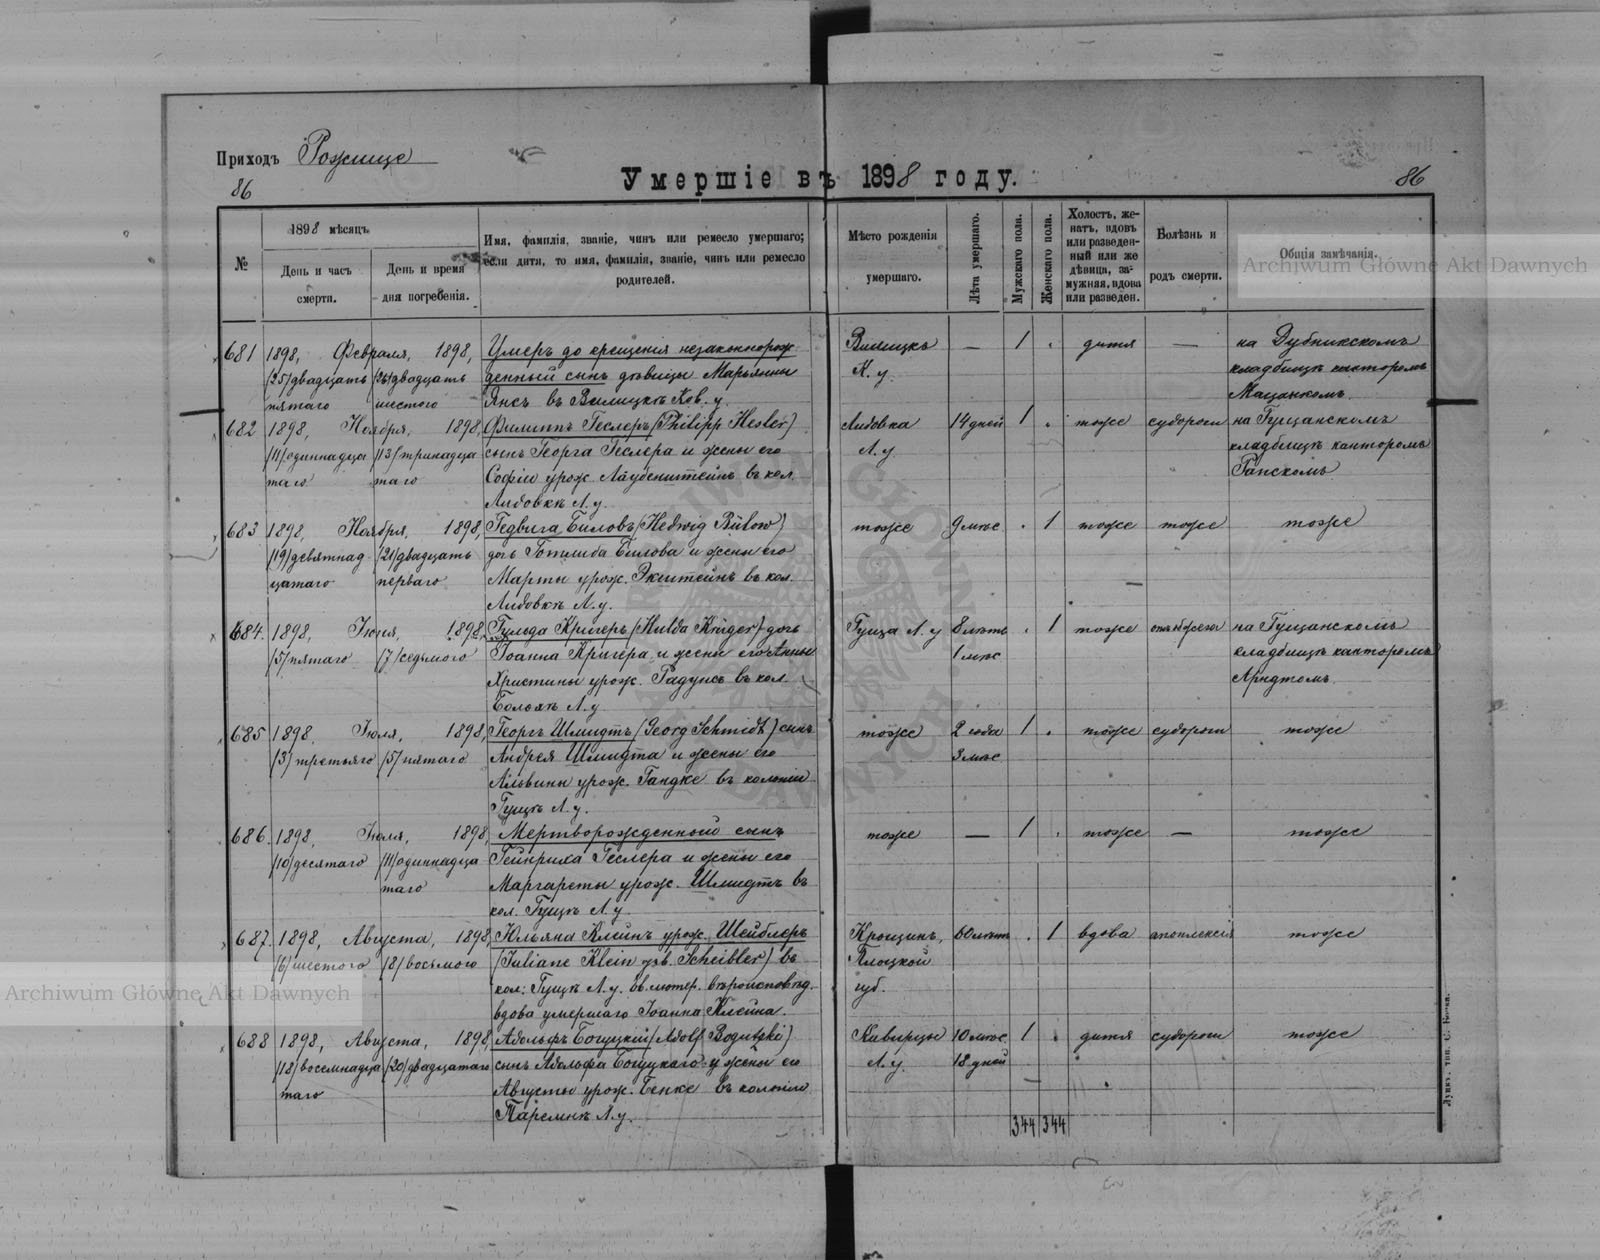 Приходъ Рожище
86
Умершіе въ 1898 году.
86
№
1898 мѣсяцъ
День и часъ смерти.
День и время дня погребенія.
Имя, фамилія, званіе, чинъ или ремесло умершаго;
если дитя, то имя, фамилія, званіе, чинъ или ремесло
родителей.
Мѣсто рожденія
умершаго.
Лѣта умершаго.
Мужскаго пола.
Женскаго пола.
Холостъ, же-
натъ, вдовъ
или разведен-
ный или же
дѣвица, за-
мужняя, вдова
или разведен.
Болѣзнь и
родъ смерти.
Общія замѣчанія.
Archiwum Główne Akt Dawnych
681 1898, Февраля, 1898, Умеръ до крещенія незаконнорож- — 1 . дитя — на Дубникскомъ
/25/двадцать /26/двадцать денный сынъ дѣвицы Марьянны К. у. кладбищѣ канторомъ
пятаго шестого Янсъ въ Ков. у.
682 1898, Ноября, 1898, Филиппъ Геслеръ (Philipp Hesler) Лидовка 14 дней 1 . тоже судороги на Гущанскомъ
/11/одиннадца /13/тринадца сынъ Георга Геслера и жены его Л. у. кладбищѣ канторомъ
таго таго Софіи урож. Лауденштейнъ въ кол. Ганскомъ
Лидовкѣ Л. у.
683 1898, Ноября, 1898, Гедвига Биловъ (Hedwig Bülow) тоже 9 мѣс. . 1 тоже тоже тоже
/19/девятнад- /21/двадцать дочь Готлиба Билова и жены его
цатаго перваго Марты урож. Экштейнъ въ кол. —
Лидовкѣ Л. у.
684. 1898, Іюня, 1898, Гульда Кригеръ (Hulda Krüger) дочь Гуща Л. у 8 лѣтъ . 1 тоже на Гущанскомъ
/5/пятаго /7/седьмого Іоанна Кригера и жены его Анны 1 мѣс кладбищѣ канторомъ
Христины урож. Радунсъ въ кол. Арндтомъ.
Л. у
685 1898. Іюля, 1898, Георгъ Шмидтъ (Georg Schmidt) сынъ тоже 2 года 1 . тоже судороги тоже
/3/третьяго /5/пятаго Андрея Шмидта и жены его 3 мѣс
Альвины урож. Гандке въ колоніи
Гущѣ Л. у.
686. 1898, Іюля, 1898, Мертворожденный сынъ тоже — 1 . тоже — тоже
/10/десятаго /11/одиннадца Гейнриха Геслера и жены его
таго Маргареты урож. Шмидтъ въ
кол. Гущѣ Л. у.
687. 1898, Августа, 1898, Юльяна Клейнъ урож. Шейблеръ Крощинъ, 60 лѣтъ . 1 вдова апоплексія тоже
/6/шестого /8/восьмого (Juliane Klein geb. Scheibler) въ Плоцкой
кол. Гущѣ Л. у. ев. лютер. вѣроисповѣд. губ.
вдова умершаго Іоанна Клейна.
688 1898, Августа, 1898, Адольфъ Богуцкій (Adolf Bogutzki) Киверцы 10 мѣс. 1 . дитя судороги тоже
/18/восемнадца /20/двадцатаго сынъ Адольфа Богуцкаго и жены его Л. у. 18 дней
таго Августы урож. Бенке въ колоніи —
Л. у.
344 344
Луцкъ, тип. С. Бокса.
Archiwum Główne Akt Dawnych